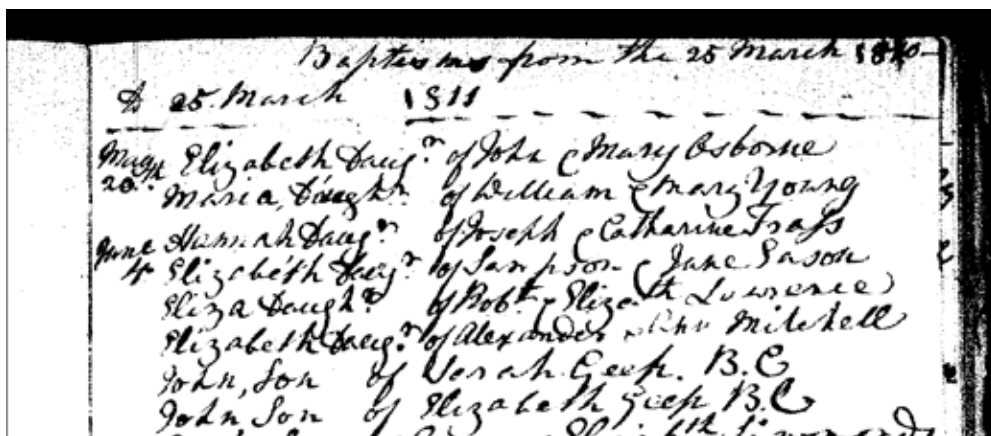 Baptisms from the 25 March 1810
to 25 March 1811
May 20th Elizabeth Daugr. of John & Mary Osborne
Maria, Daughr. of William & Mary Young
June Hannah Daugr. of Joseph & Catharine Trass
4 Elizabeth Daugr. of Sampson & Jane Eason
Eliza Daughr. of Robt. & Elizath Lowrence
Elizabeth Daugr. of Alexander & Ann Mitchell
John, Son of Sarah Geep. B.C
John Son of Elizabeth Geep B.C